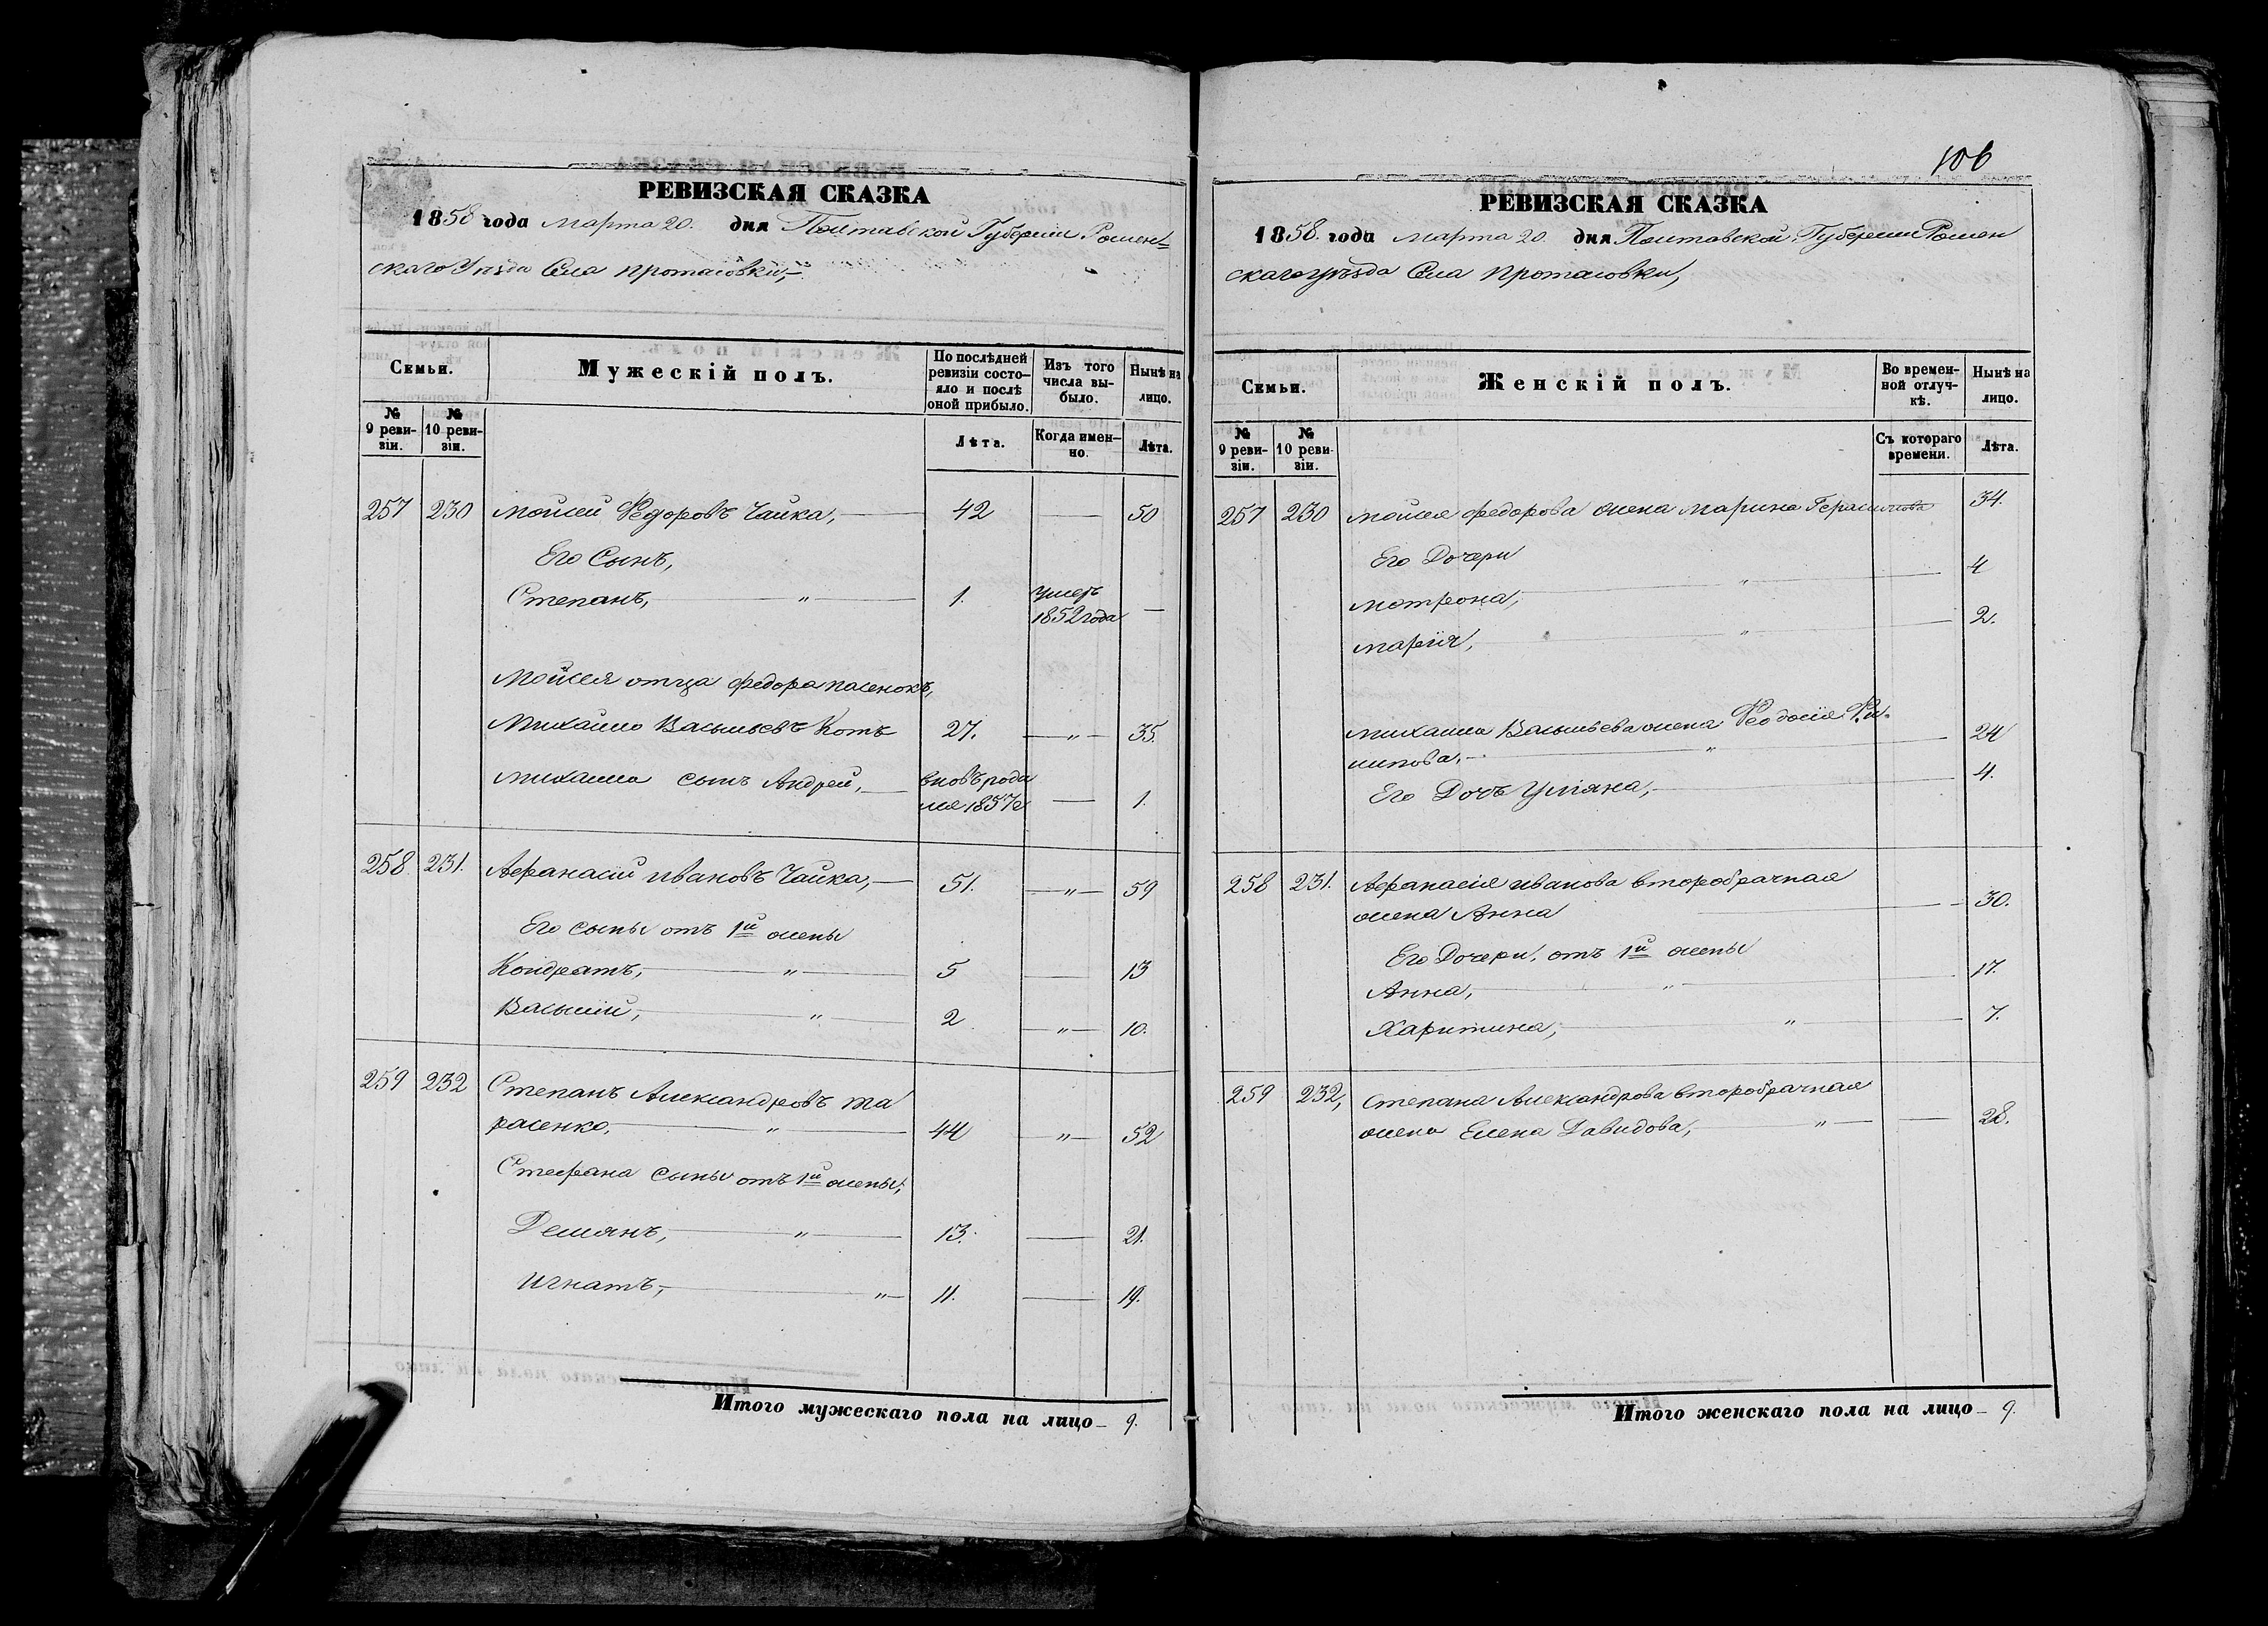 РЕВИЗСКАЯ СКАЗКА
1858 года марта 20. дня Полтавской Губернии Ромен=
скаго Уезда Села Протасовки,
Семьи.
Мужескій полъ.
По послѣдней ревизіи состояло и послѣ оной прибыло.
Изъ того числа выбыло.
Нынѣ на лицо.
№ 9 ревизіи.
№ 10 ревизіи.
Лѣта.
Когда именно.
Лѣта.
257 230 Мойсей Федоровъ Чайка, 42 — 50
Его Сынъ,
Степанъ, „ 1. умеръ 1852 года —
Мойсея отца Федора пасенокъ,
Михайло Васильевъ Котъ 27. „ 35.
Михайла сынъ Андрей, вновь родился 1857 г — 1.
258 231. Афанасий Ивановъ Чайка, 51. „ 59
Его сыны отъ 1й жены
Кондратъ, „ 5 — 13
Василий, „ 2 „ 10.
259 232 Степанъ Александровъ Та
расенко, „ 44 „ 52
Стефана сыны отъ 1й жены,
Демянъ, „ 13. — 21.
Игнатъ, „ 11. — 19.
Итого мужескаго пола на лицо 9.
106
РЕВИЗСКАЯ СКАЗКА
1858. года марта 20. дня Полтавской Губернии Ромен
скаго уѣзда Села Протасовки,
Семьи.
Женскій полъ.
Во временной отлучкѣ.
Нынѣ на лицо.
№ 9 ревизіи.
№ 10 ревизіи.
Съ котораго времени.
Лѣта.
257 230 Мойсея Федорова жена Марина Герасимова 34.
Его Дочери
Мотрона, „ 4
Мария, „ 2.
Михайла Васильева жена Феодосия Фи-
липова, „ 24
Его Дочь Улияна, 4.
258 231. Афанасия Иванова второбрачная
жена Анна 30.
Его Дочери, отъ 1й жены
Анна, „ 17.
Харитина, „ 7.
259 232, Степана Александрова второбрачная
жена Елена Давидова, „ — 28.
Итого женскаго пола на лицо 9.